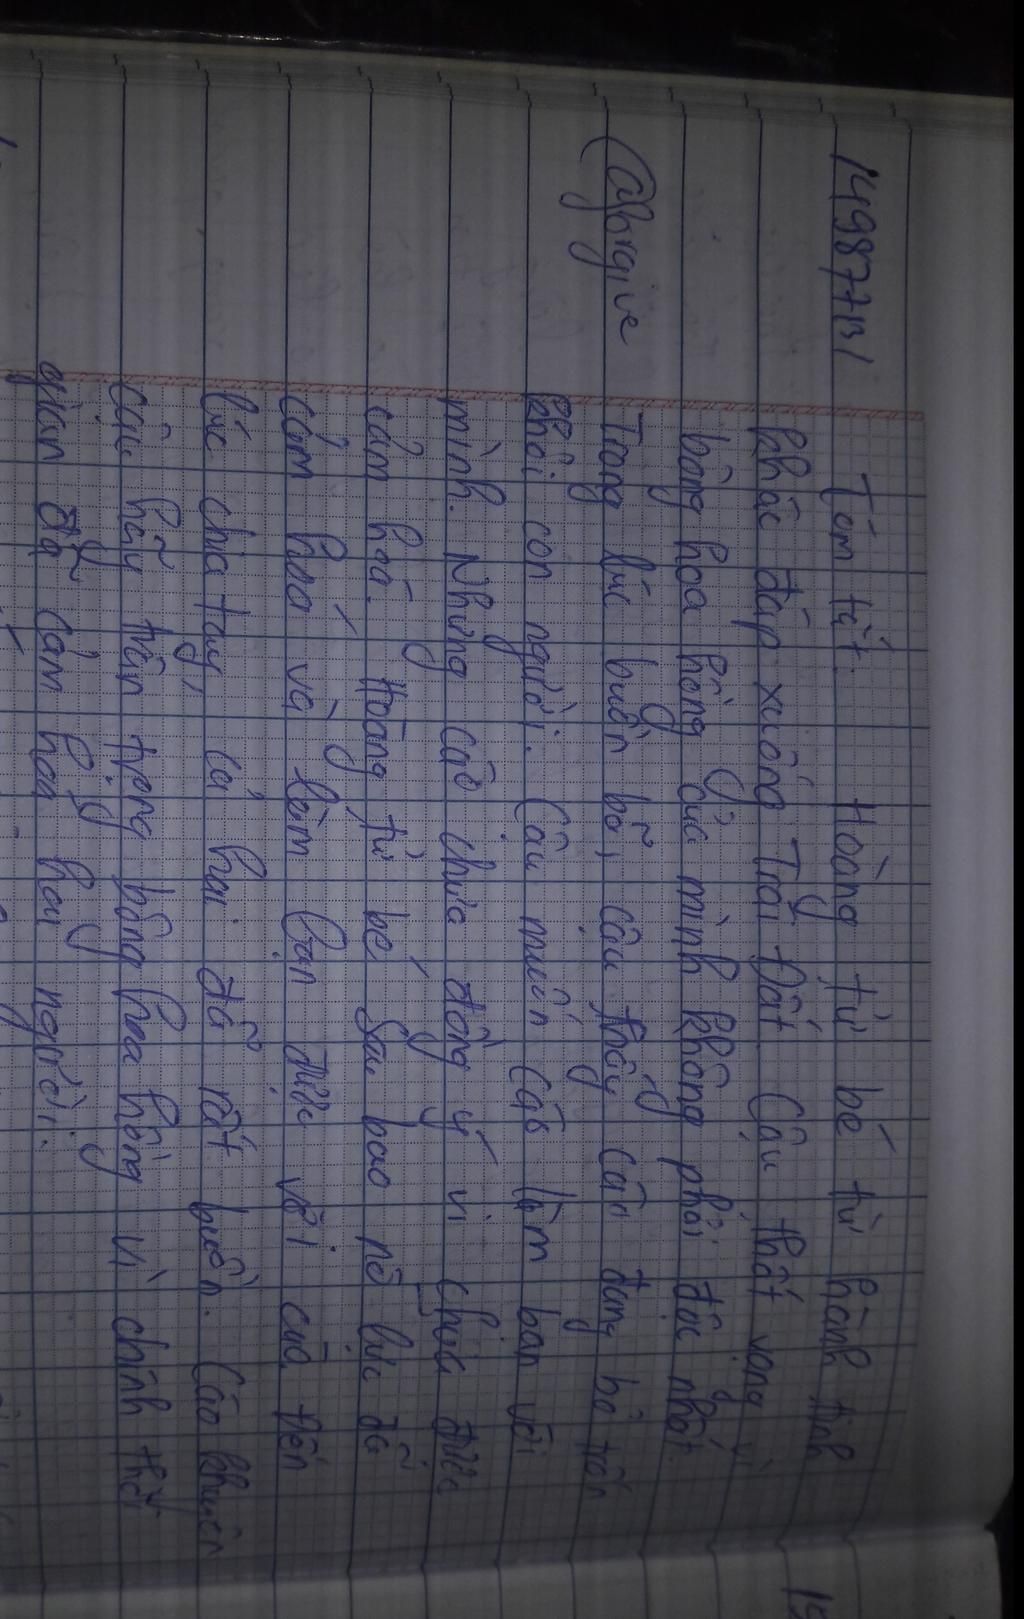 14987713/
Tóm tắt: Hoàng tử bé từ hành tinh
khác đáp xuống Trái Đất. Cậu thất vọng vì
bông hoa hồng của mình không phải độc nhất.
Trong lúc buồn bã, cậu thấy cáo đang bỏ trốn
khỏi con người. Cậu muốn cáo làm bạn với
mình. Nhưng cáo chưa đồng ý vì chưa được
cảm hoá. Hoàng tử bé sau bao nỗ lực đã
cảm hoá và làm bạn được với cáo. Đến
lúc chia tay, cả hai đã rất buồn. Cáo khuyên
cậu hãy trân trọng bông hoa hồng vì chính thời
gian đã cảm hoá hai người.